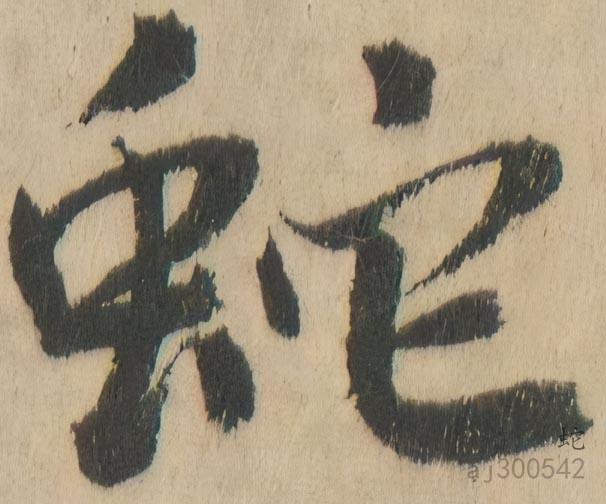 蛇
蛇
aj300542